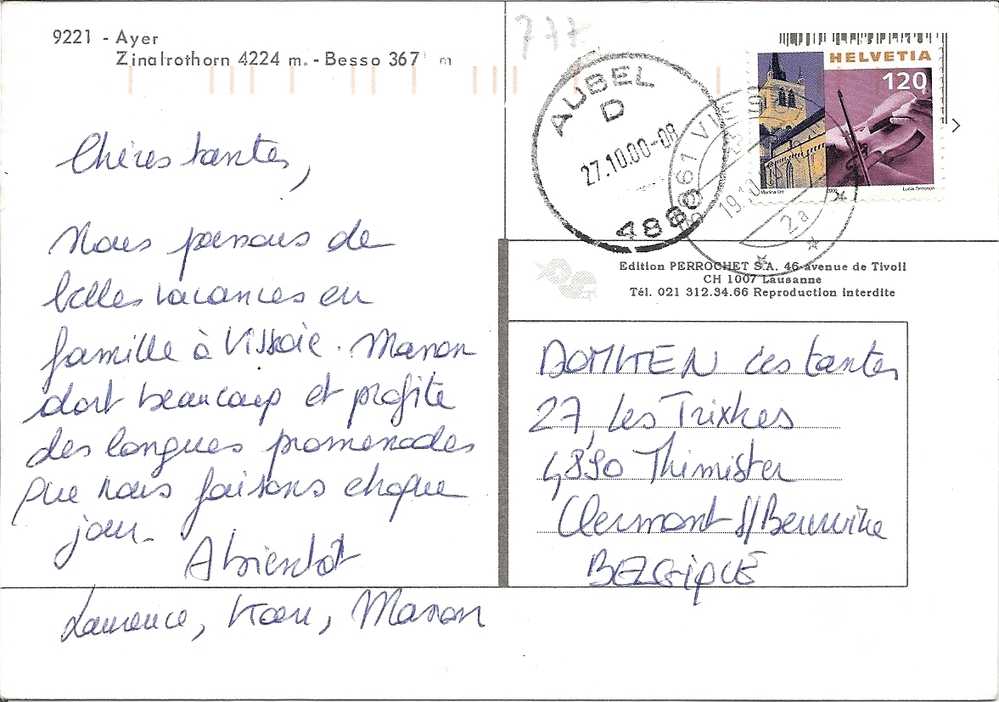 9221 - Ayer
Zinalrothorn 4224 m. - Besso 367 m
Chères tantes,
Nous passons de
belles vacances en
famille à Vissoie. Manon
dort beaucoup et profite
des longues promenades
que nous faisons chaque
jour.
A bientôt
Laurence, Manon
777
AUBEL
D
27.10.00-08
4880
3961 VIS
19.10.0
2a
HELVETIA
120
Edition PERROCHET S.A. 46-avenue de Tivoli
CH 1007 Lausanne
Tél. 021 312.34.66 Reproduction interdite
Les tantes
27, Les Trixhes
4890 Thimister
Clermont s/Berwine
BELGIQUE